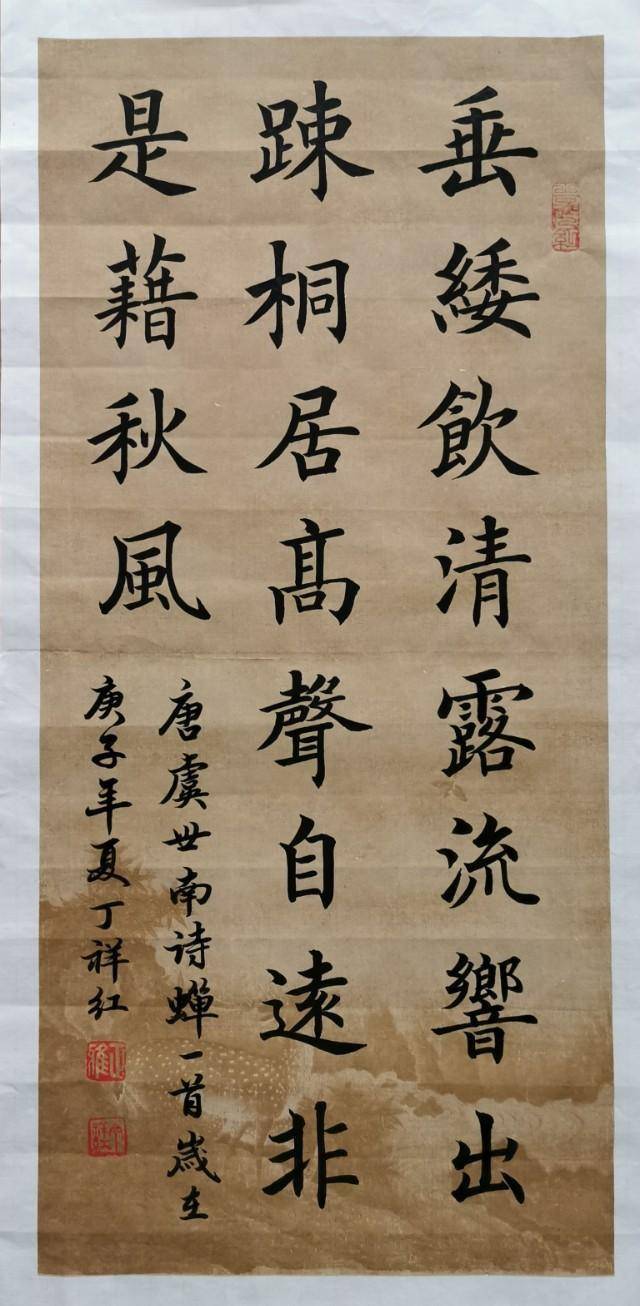 垂緌飲清露流響出
踈桐居高聲自遠非
是藉秋風
唐虞世南诗蝉一首歲在
庚子年夏丁祥红